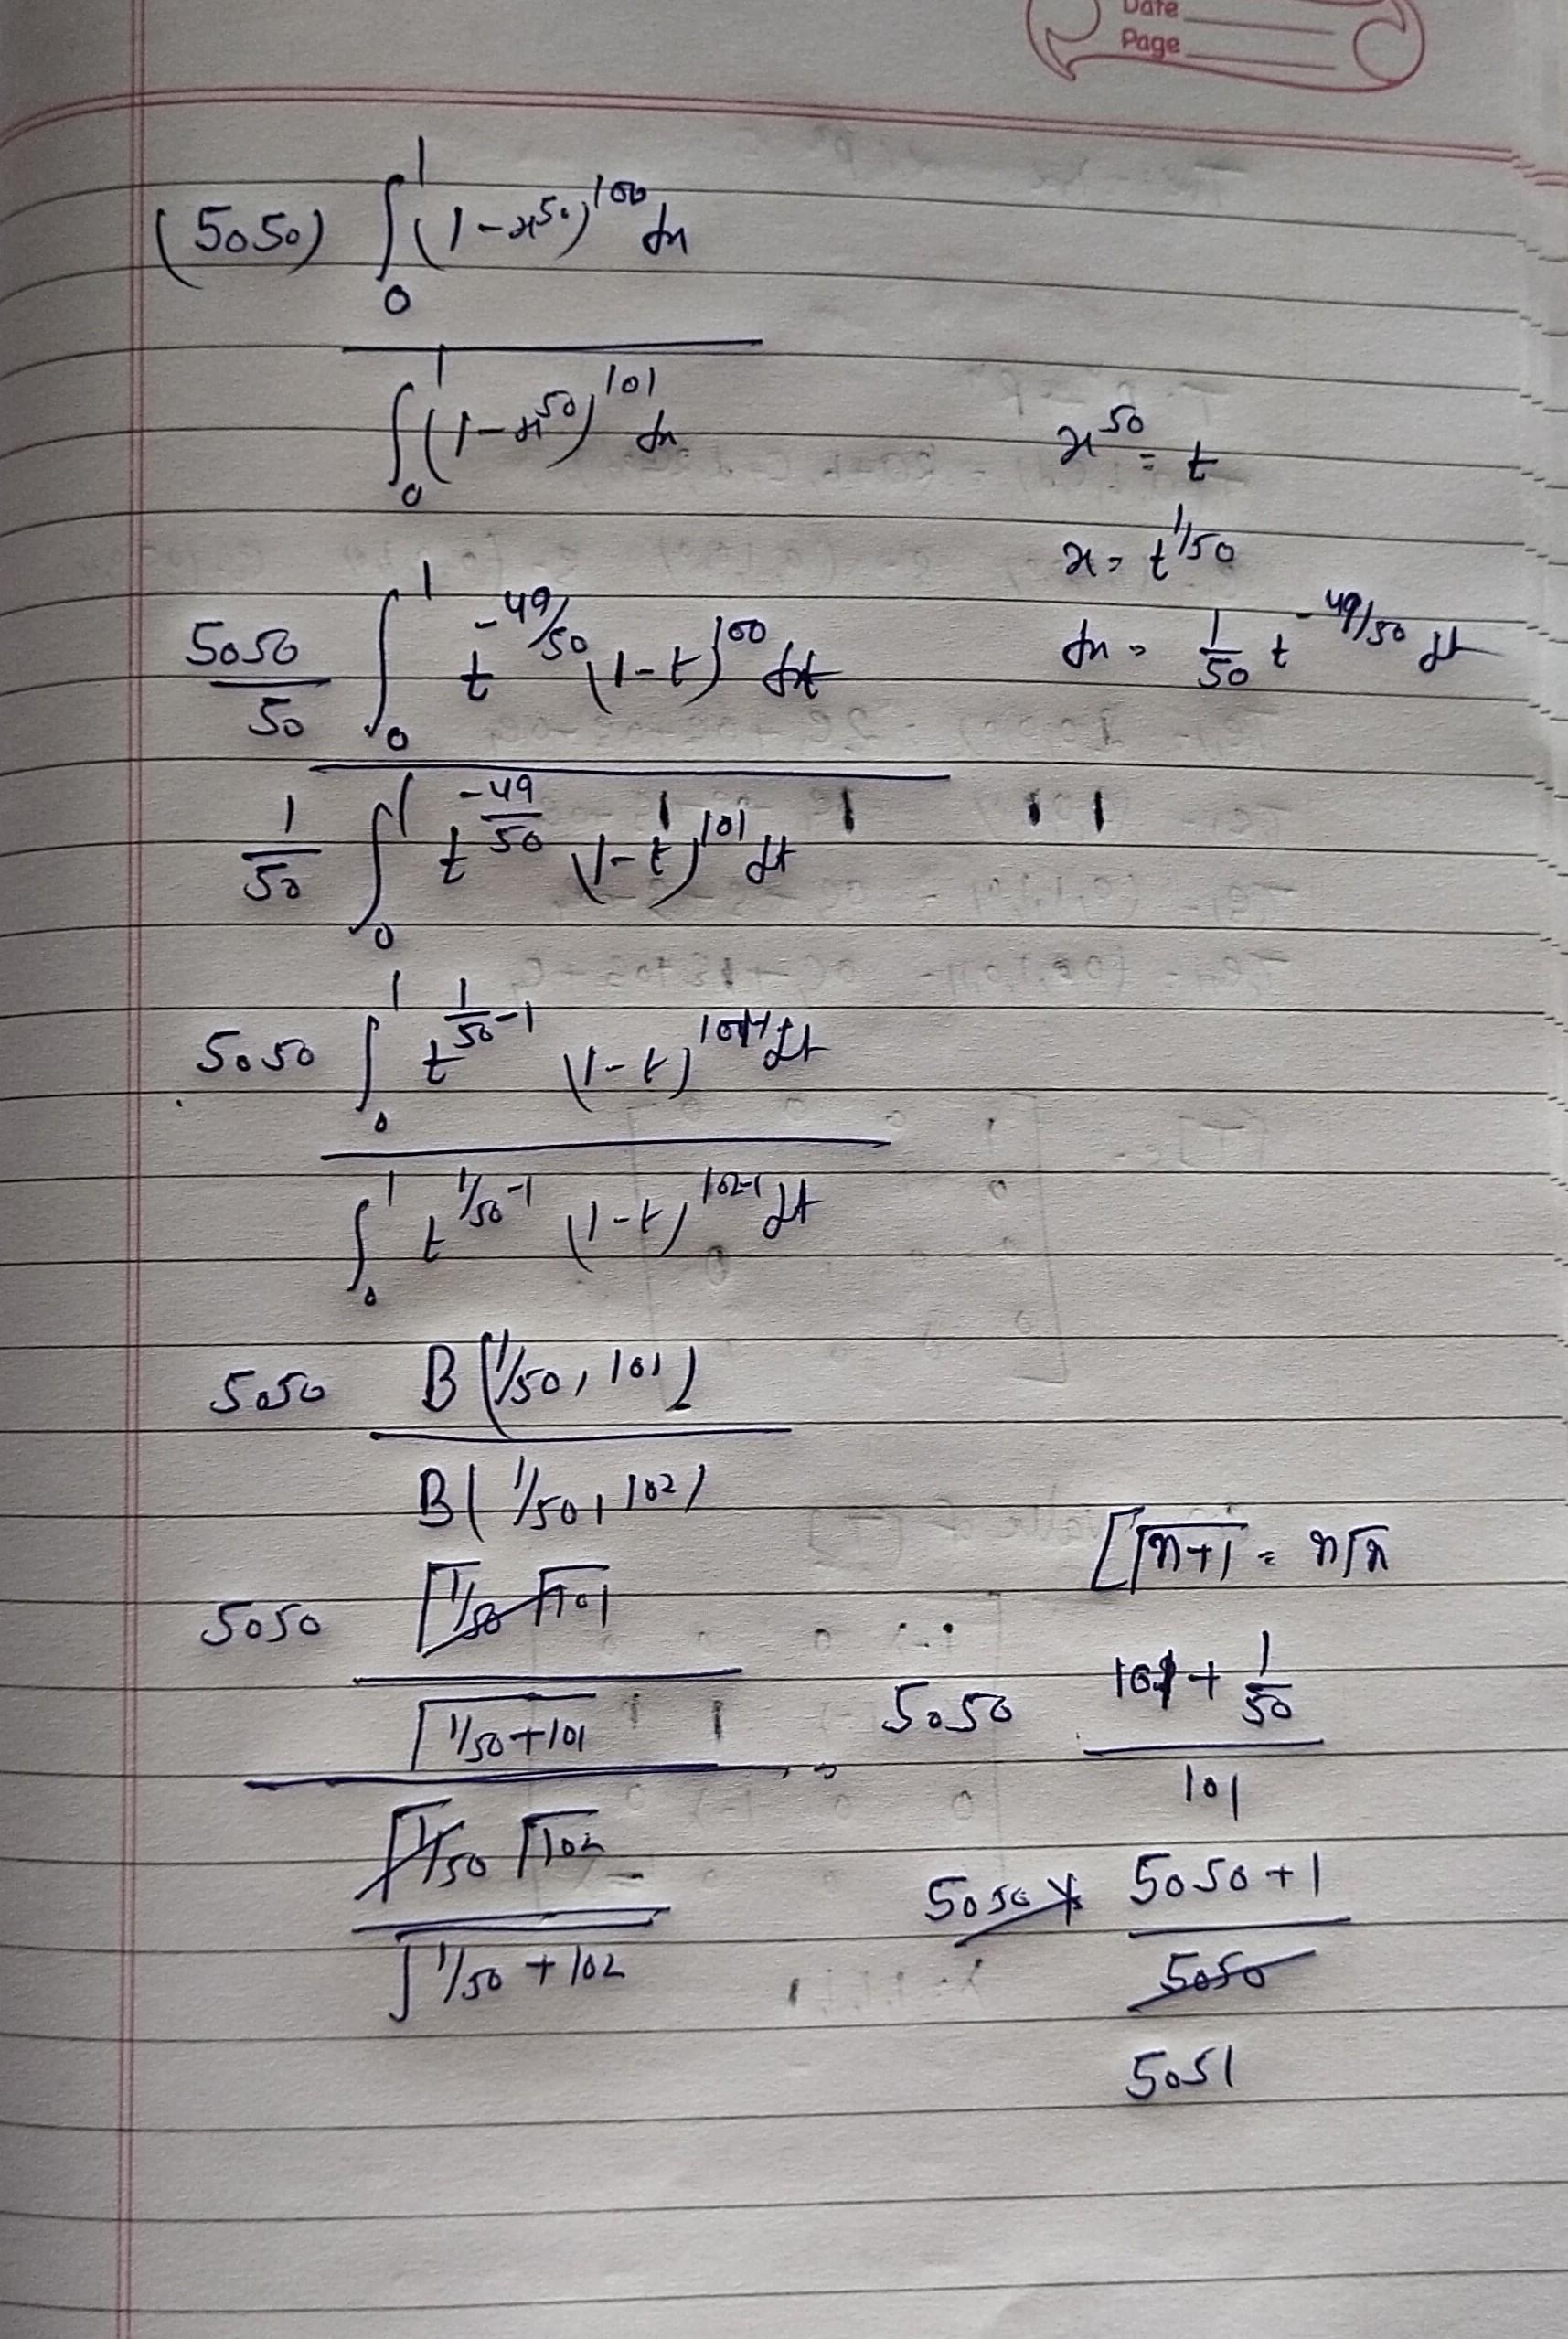 Date
Page
(5050) ∫₀¹ (1-x⁵⁰)¹⁰⁰ dx
∫₀¹ (1-x⁵⁰)¹⁰¹ dx
x⁵⁰ = t
x = t^(1/50)
dx = 1/50 t^(-49/50) dt
5050/50 ∫₀¹ t^(-49/50) (1-t)¹⁰⁰ dt
1/50 ∫₀¹ t^(-49/50) (1-t)¹⁰¹ dt
5050 ∫₀¹ t^(1/50-1) (1-t)^(101-1) dt
∫₀¹ t^(1/50-1) (1-t)^(102-1) dt
5050 B(1/50, 101)
B(1/50, 102)
[Γn+1 = nΓn
5050 Γ1/50 Γ101
Γ1/50+101
Γ1/50 Γ102
Γ1/50+102
= 5050 101+1/50
101
5050 × 5050+1
5050
5051